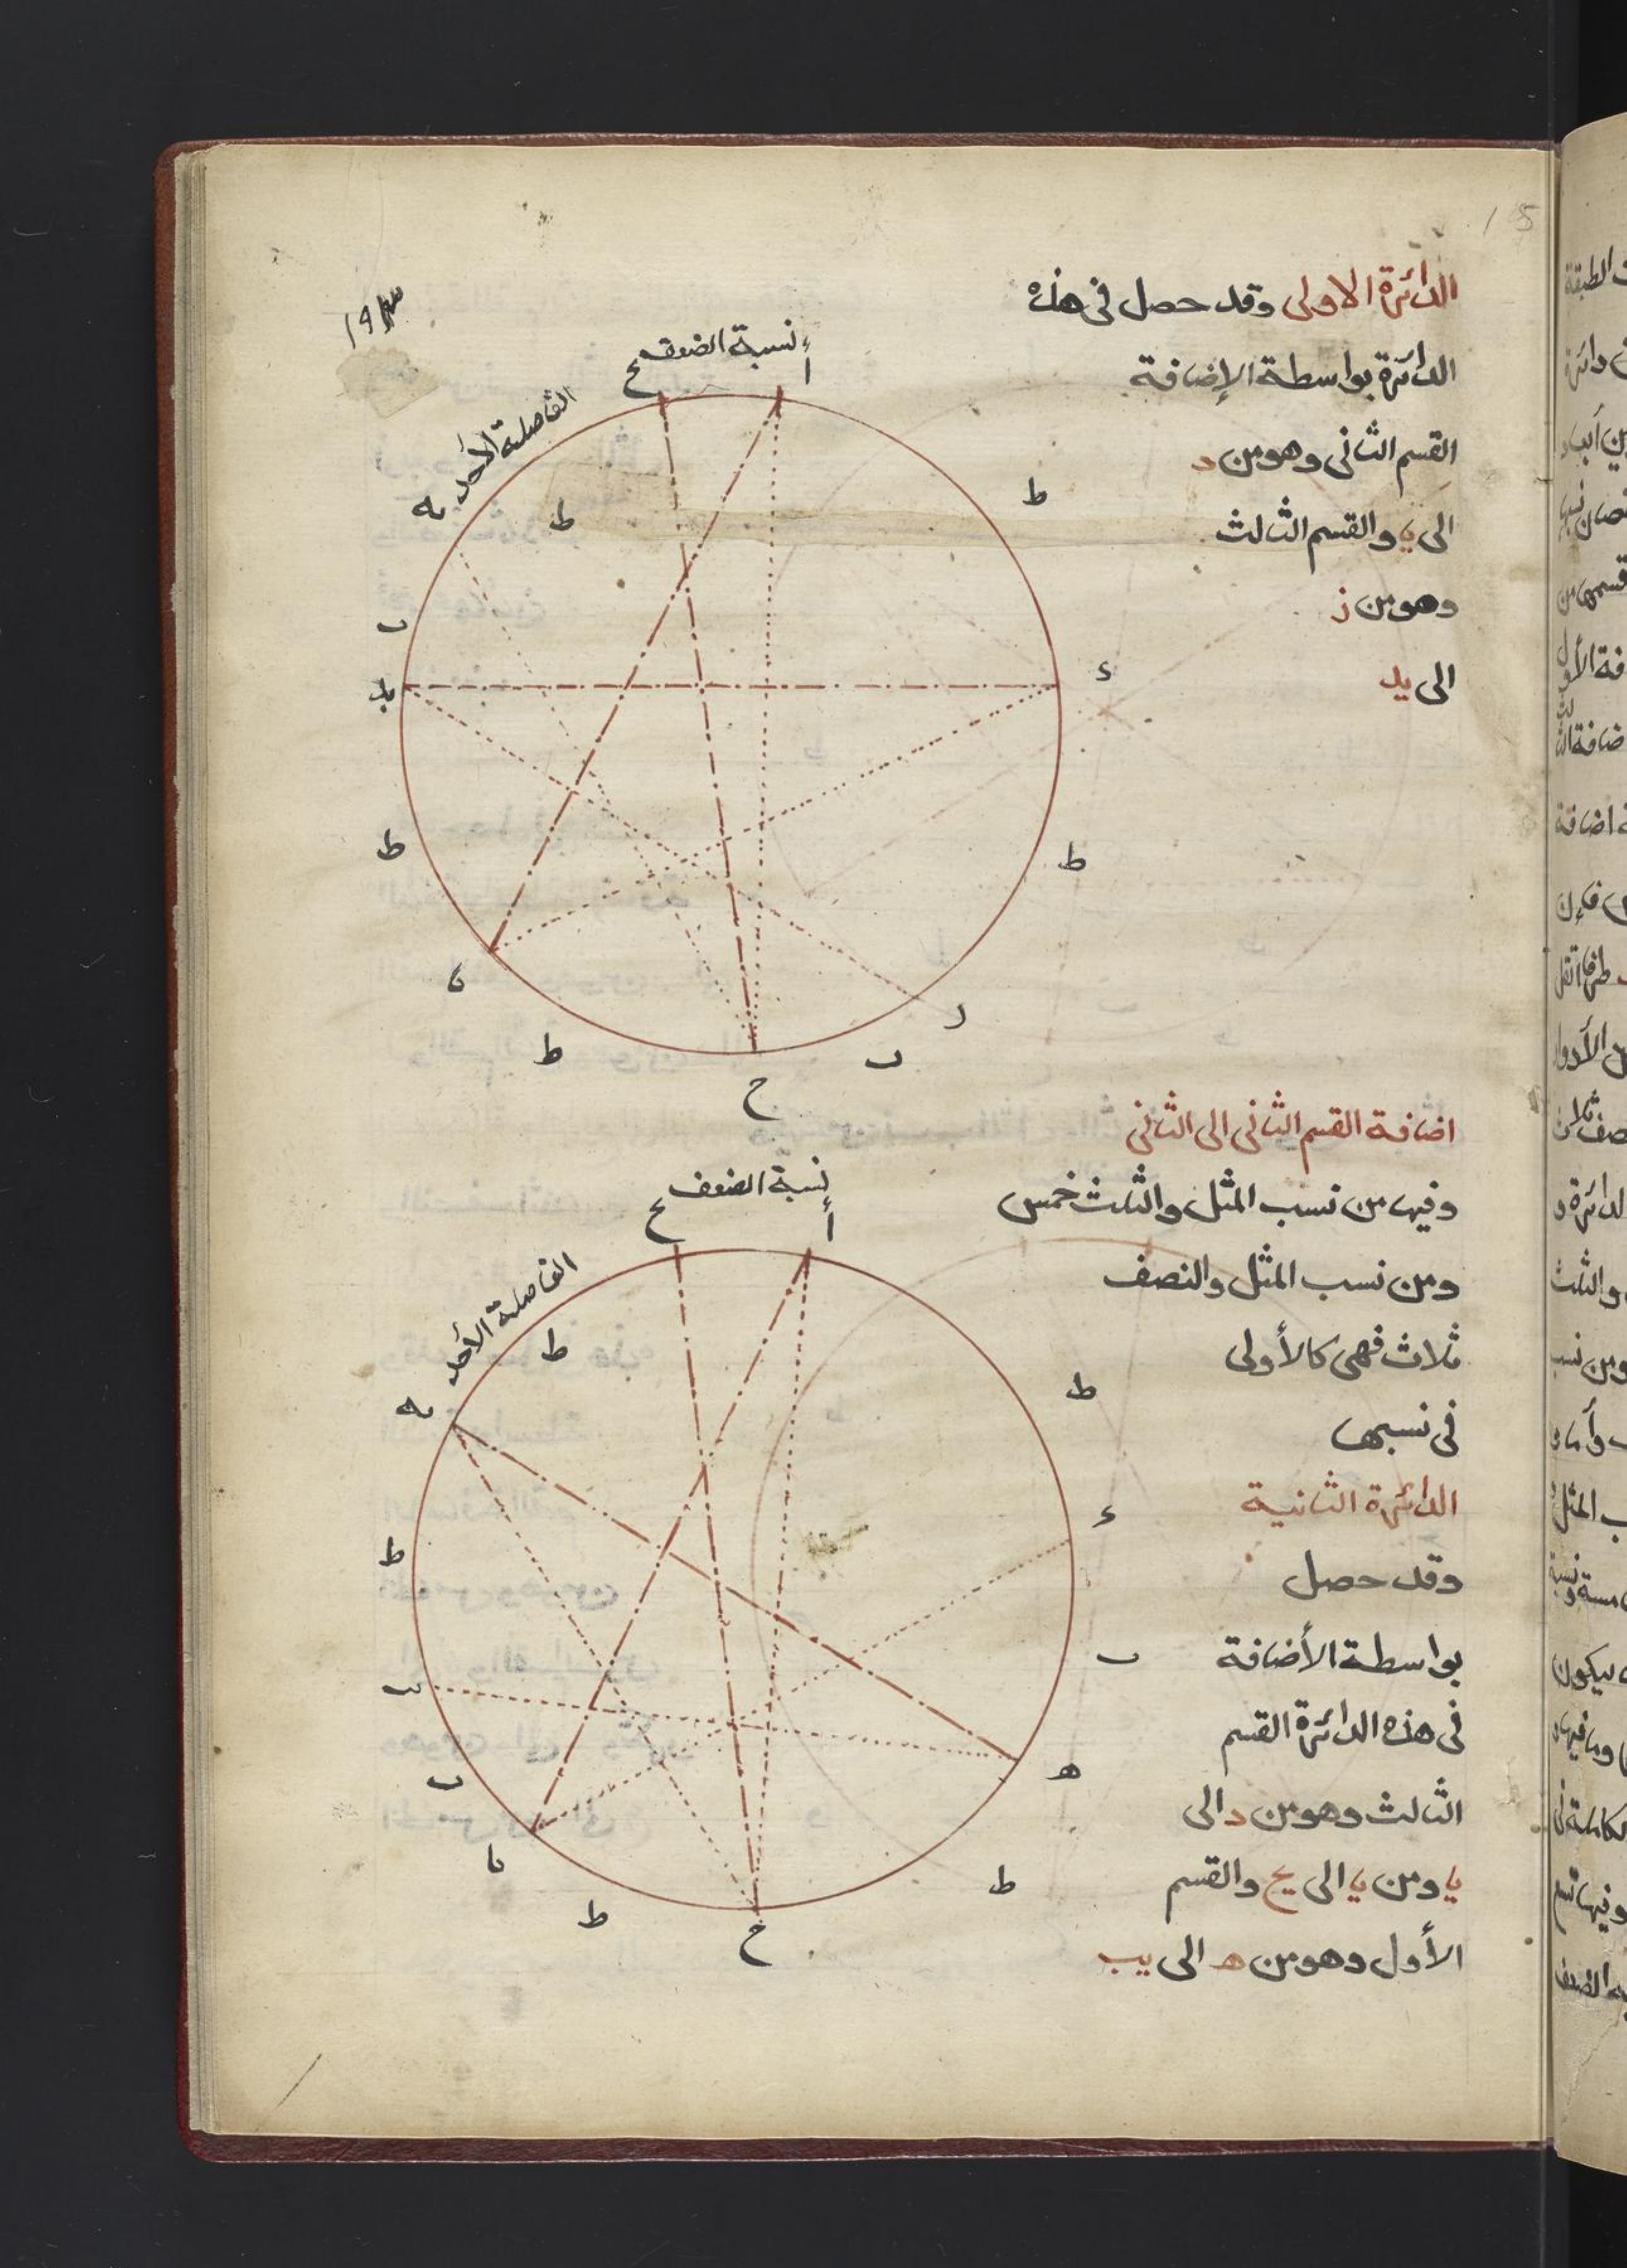 الدائرة الاولى وقد حصل فى هذه
الدائرة بواسطة الإضافة
القسم الثانى وهو من د
الى يا والقسم الثالث
وهو من ز
الى يد
نسبة الضعف
أ
يح
الفاصلة الأحد
يه
ط
ط
ب
يد
د
ط
ط
يا
ط
ح
ب
ز
اضافة القسم الثانى الى الثانى
وفيها من نسب المثل والثلث خمس
ومن نسب المثل والنصف
ثلاث فهى كالأولى
فى نسبها
الدائرة الثانية
وقد حصل
بواسطة الأضافة
فى هذه الدائرة القسم
الثالث وهو من د الى
يا ومن يا الى يح والقسم
الأول وهو من ه الى يب
نسبة الضعف
أ
يح
الفاصلة الأحد
يه
ط
ط
د
ط
ب
يب
ب
ه
يا
ط
ط
ح
15